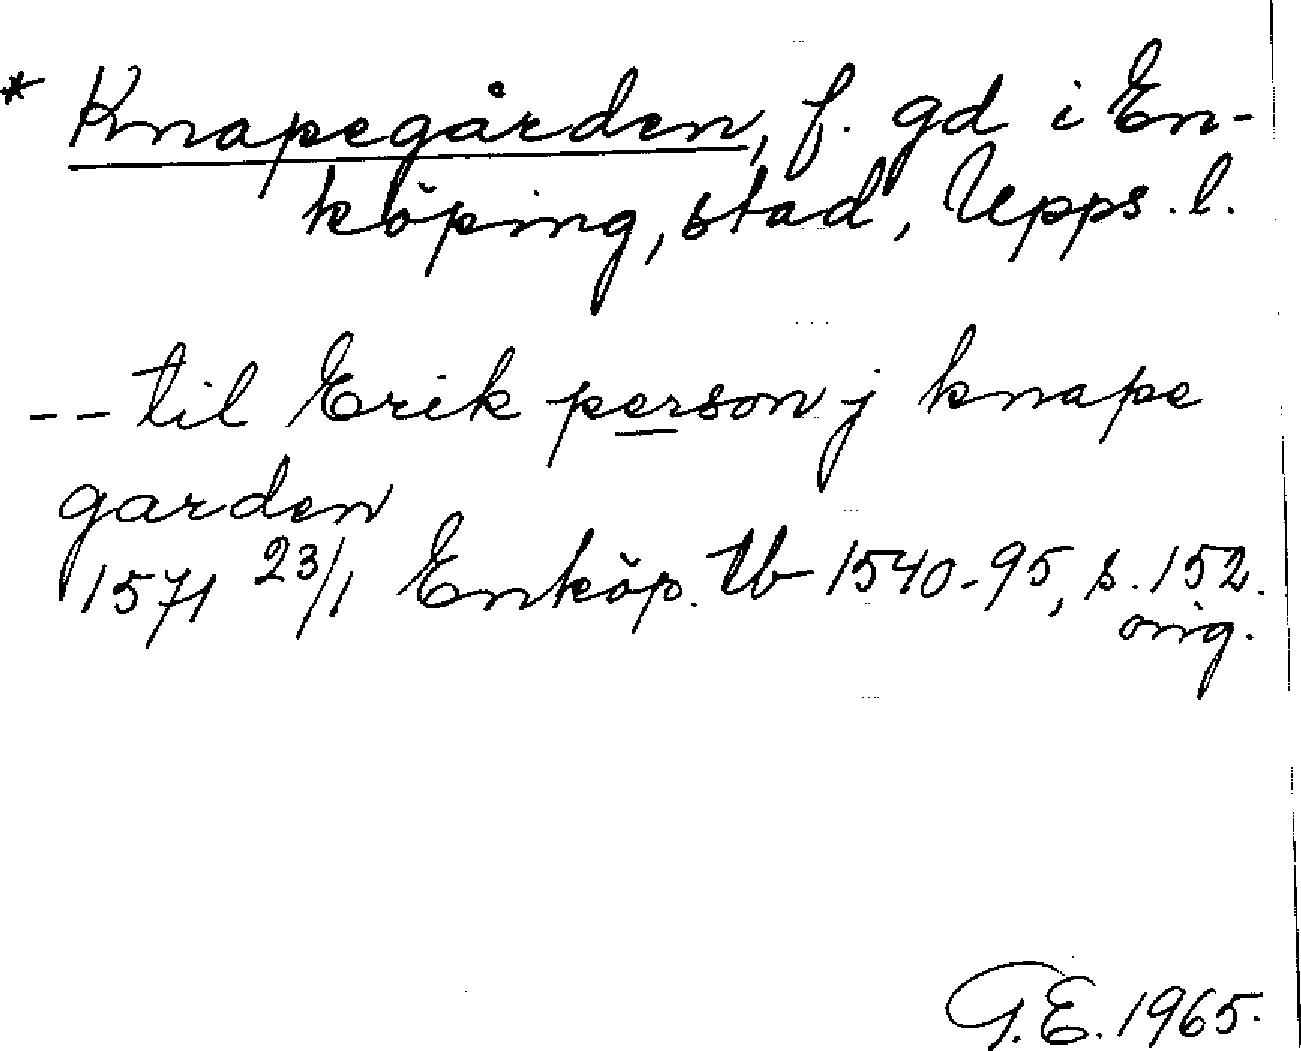 * Knapegården, f. gd i En-
köping, stad, Upps. l.
-- til Erik person j knape
garden
1571 23/1 Enköp. tb 1540-95, s. 152.
orig.
G.E. 1965.